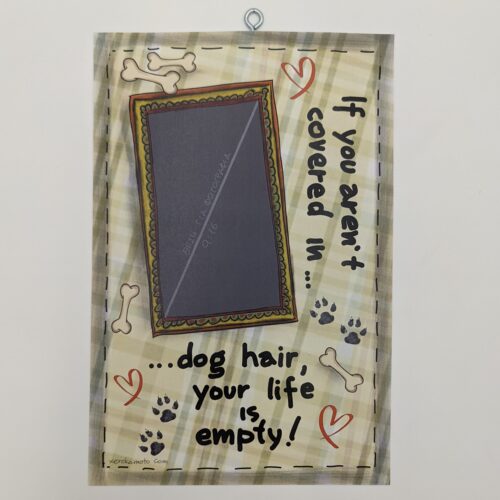 If you aren't
covered in...
...dog hair,
your life
is
empty!